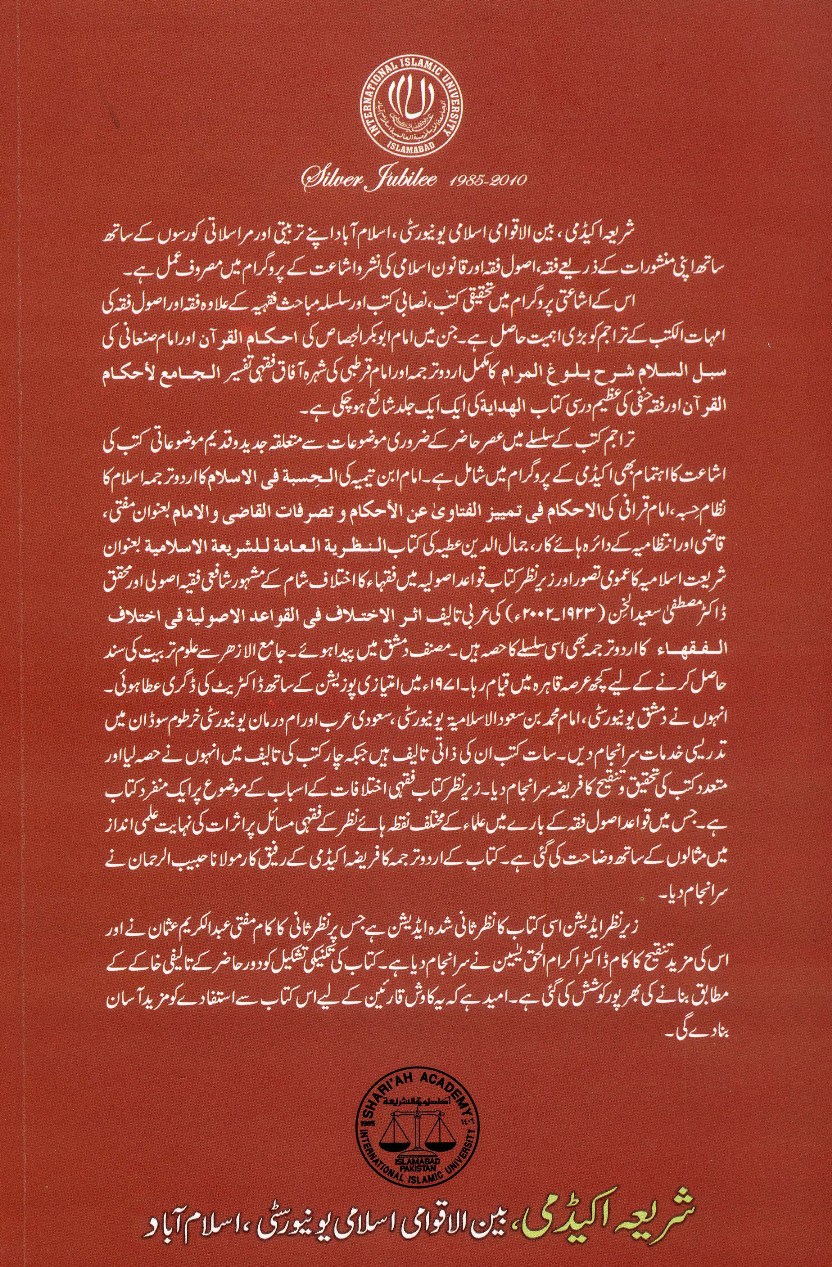 INTERNATIONAL ISLAMIC UNIVERSITY
ISLAMABAD
Silver Jubilee 1985-2010
شریعہ اکیڈمی، بین الاقوامی اسلامی یونیورسٹی، اسلام آباد اپنے تربیتی اور مراسلاتی کورسوں کے ساتھ
ساتھ اپنی منشورات کے ذریعے فقہ، اصول فقہ اور قانون اسلامی کی نشر و اشاعت کے پروگرام میں مصروف عمل ہے۔
اس کے اشاعتی پروگرام میں تحقیقی کتب، نصابی کتب اور سلسلہ مباحث فقہیہ کے علاوہ فقہ اور اصول فقہ کی
امہات الکتب کے تراجم کو بڑی اہمیت حاصل ہے۔ جن میں امام ابوبکر الجصاص کی احکام القرآن اور امام صنعانی کی
سبل السلام شرح بلوغ المرام کا مکمل اردو ترجمہ اور امام قرطبی کی شہرہ آفاق فقہی تفسیر الجامع لأحکام
القرآن اور فقہ حنفی کی عظیم درسی کتاب الھدایة کی ایک ایک جلد شائع ہو چکی ہے۔
تراجم کتب کے سلسلے میں عصر حاضر کے ضروری موضوعات سے متعلقہ جدید و قدیم موضوعاتی کتب کی
اشاعت کا اہتمام بھی اکیڈمی کے پروگرام میں شامل ہے۔ امام ابن تیمیہ کی الحسبة فی الاسلام کا اردو ترجمہ اسلام کا
نظام حسبہ، امام قرافی کی الاحکام فی تمییز الفتاویٰ عن الأحکام و تصرفات القاضی و الامام بعنوان مفتی،
قاضی اور انتظامیہ کے دائرہ ہائے کار، جمال الدین عطیہ کی کتاب النظریة العامة للشریعة الاسلامیة بعنوان
شریعت اسلامیہ کا عمومی تصور اور زیر نظر کتاب قواعد اصولیہ میں فقہاء کا اختلاف شام کے مشہور شافعی فقیہ اصولی اور محقق
ڈاکٹر مصطفیٰ سعید الخِن (۱۹۲۳۔۲۰۰۲ء) کی عربی تالیف اثر الاختلاف فی القواعد الاصولیة فی اختلاف
الفقهاء کا اردو ترجمہ بھی اسی سلسلے کا حصہ ہیں۔ مصنف دمشق میں پیدا ہوئے۔ جامع الازھر سے علوم تربیت کی سند
حاصل کرنے کے لیے کچھ عرصہ قاہرہ میں قیام رہا۔ ۱۹۷۱ء میں امتیازی پوزیشن کے ساتھ ڈاکٹریٹ کی ڈگری عطا ہوئی۔
انہوں نے دمشق یونیورسٹی، امام محمد بن سعود الاسلامیۃ یونیورسٹی، سعودی عرب اور ام درمان یونیورسٹی خرطوم سوڈان میں
تدریسی خدمات سرانجام دیں۔ سات کتب ان کی ذاتی تالیف ہیں جبکہ چار کتب کی تالیف میں انہوں نے حصہ لیا اور
متعدد کتب کی تحقیق و تنقیح کا فریضہ سرانجام دیا۔ زیر نظر کتاب فقہی اختلافات کے اسباب کے موضوع پر ایک منفرد کتاب
ہے۔ جس میں قواعد اصول فقہ کے بارے میں علماء کے مختلف نقطہ ہائے نظر کے فقہی مسائل پر اثرات کی نہایت علمی انداز
میں مثالوں کے ساتھ وضاحت کی گئی ہے۔ کتاب کے اردو ترجمہ کا فریضہ اکیڈمی کے رفیق کار مولانا حبیب الرحمان نے
سرانجام دیا۔
زیر نظر ایڈیشن اسی کتاب کا نظر ثانی شدہ ایڈیشن ہے جس پر نظر ثانی کا کام مفتی عبدالکریم عثمان نے اور
اس کی مزید تنقیح کا کام ڈاکٹر اکرام الحق یٰسین نے سرانجام دیا ہے۔ کتاب کی تکنیکی تشکیل کو دور حاضر کے تالیفی خاکے کے
مطابق بنانے کی بھرپور کوشش کی گئی ہے۔ امید ہے کہ یہ کاوش قارئین کے لیے اس کتاب سے استفادے کو مزید آسان
بنا دے گی۔
SHARI'AH ACADEMY
1985
ISLAMABAD
PAKISTAN
INTERNATIONAL ISLAMIC UNIVERSITY
شریعہ اکیڈمی، بین الاقوامی اسلامی یونیورسٹی، اسلام آباد